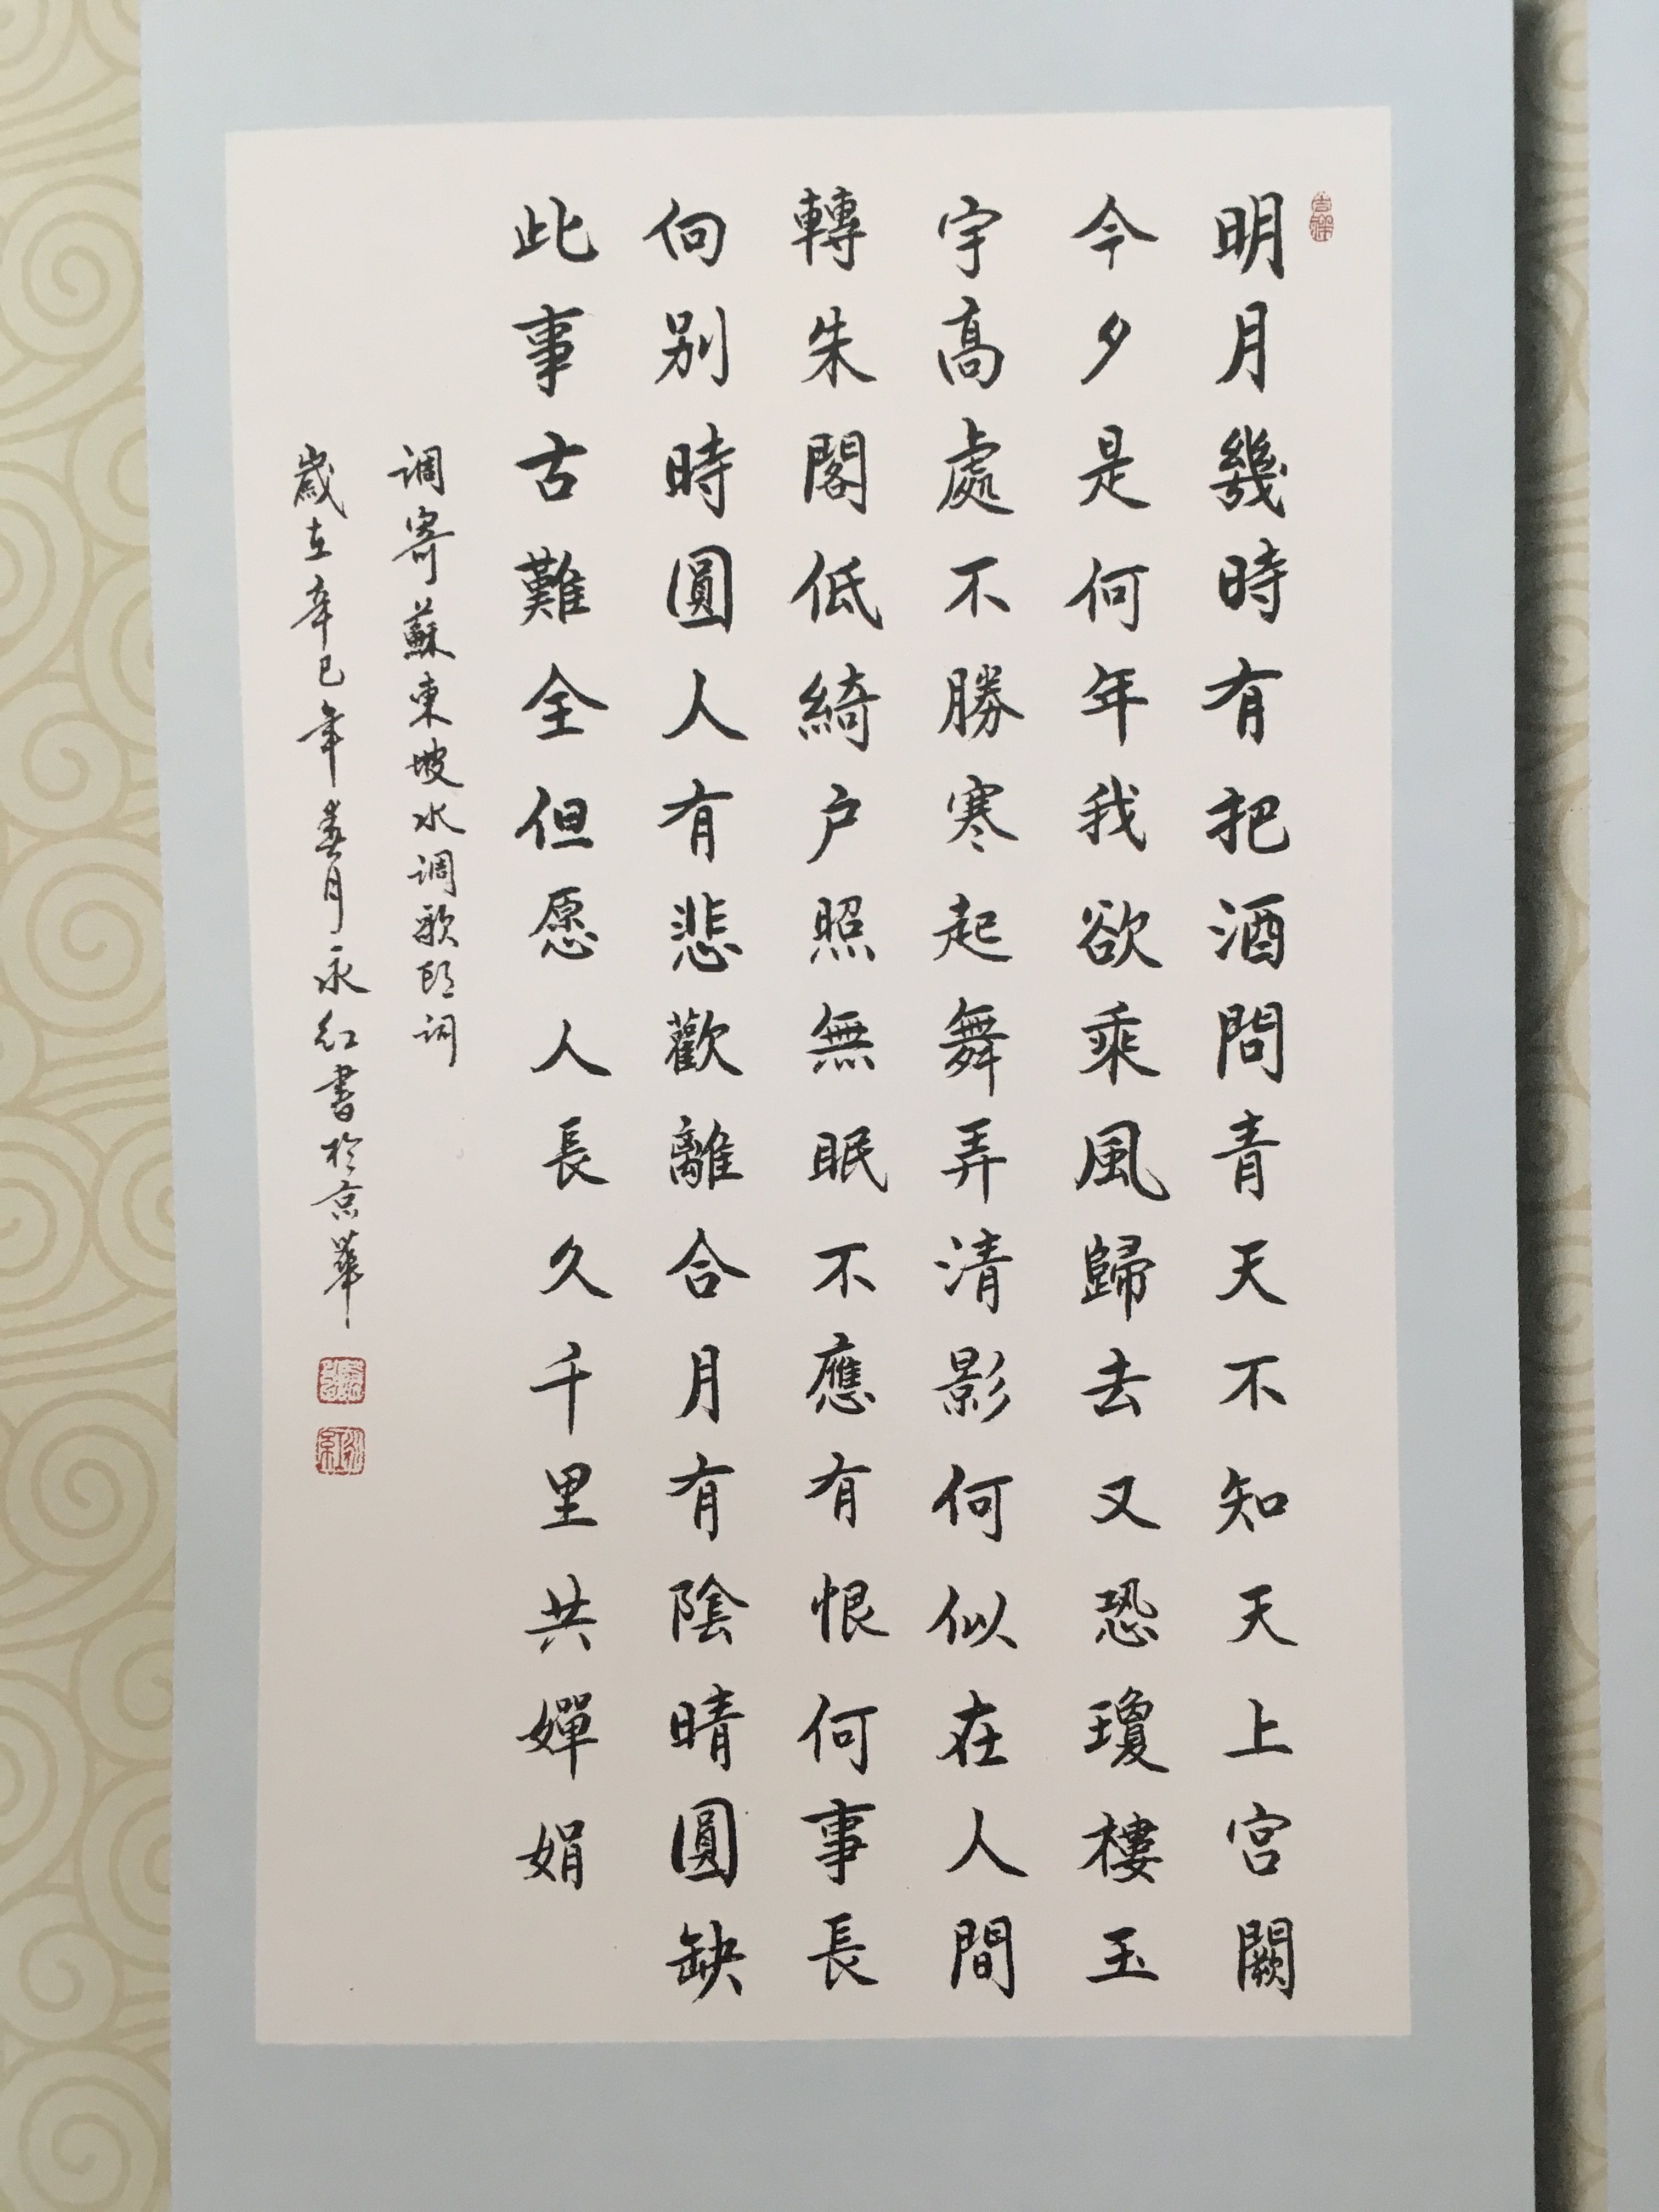 明月幾時有把酒問青天不知天上宫闕
今夕是何年我欲乘風歸去又恐瓊樓玉
宇高處不勝寒起舞弄清影何似在人間
轉朱閣低綺户照無眠不應有恨何事長
向别時圓人有悲歡離合月有陰晴圓缺
此事古難全但愿人長久千里共嬋娟
调寄蘇東坡水调歌頭词
歲在辛巳年春月永红書於京華
永红